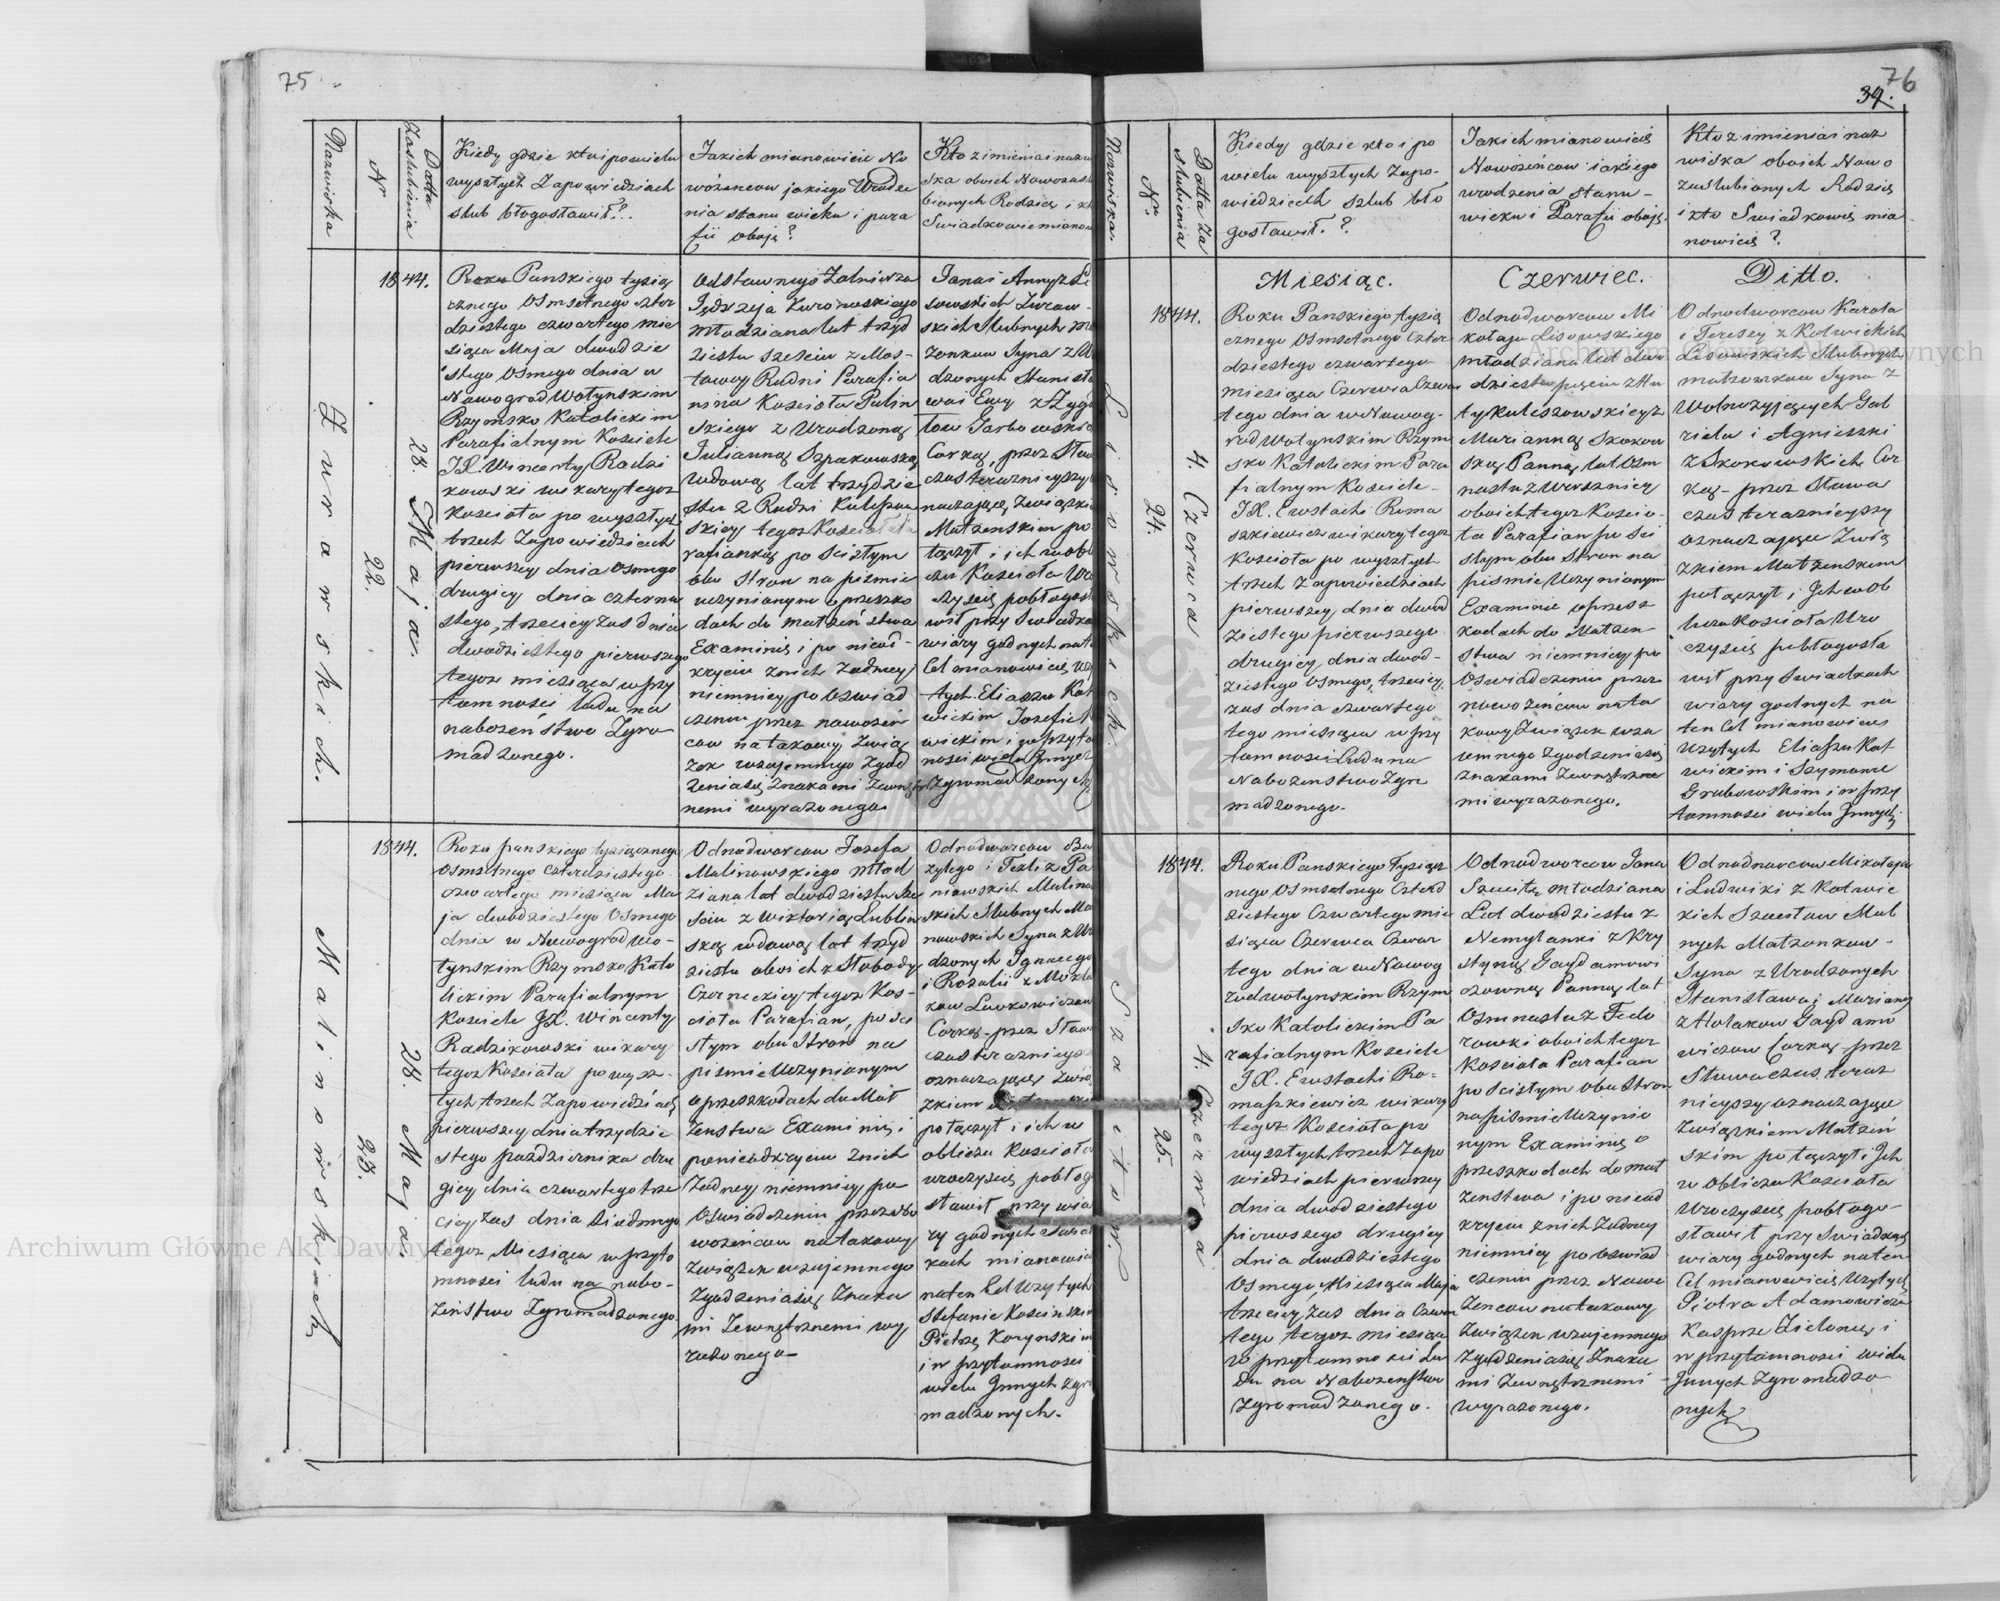 75
76
39.
Nazwiska
N
Datta Zaslubienia
Kiedy gdzie kto i po wielu
wyszłych Zapowiedziach
slub błogosławił?
Jakich mianowicie No
wożencow jakiego Urodze
nia stanu wieku i para
fii oboje?
Kto z imienia i nazw
ska oboich Nowozaś
bionych Rodzice i kt
Swiadkowie mianow
Zurawskich.
22.
28. Maja.
1844.
Roku Panskiego tysią
cznego Osmsetnego czter
dziestego czwartego mie
siąca Maja dwudzie
stego Osmego dnia w
Nowogrod Wołynskim
Rzymsko Katolickim
Parafialnym Kosciele
JX. Wincenty Radzi
kowski wikary tegoz
Kosciola po wyszłych
trzech Zapowiedziach
pierwszey dnia Osmego
drugiey dnia czterna
stego, trzeciey zas dnia
dwudziestego pierwszego
tegoz miesiąca w przy
tomnosci ludu na
nabozeństwo Zgro
madzonego.
Odstawnego Zolnierza
Jędrzeja Zurawskiego
młodziana lat trzyd
ziestu szesciu z Mos-
towey Rudni Parafia
nina Kosciola Pulin
skiego z Urodzoną
Julianną Szpakowską
wdową lat trzydzie
stu z Rudni Kuleszow
skiey tegoz Kosciola Pa
rafianką po scisłym
obu stron na pismie
uczynionym o przeszko
dach do małżeństwa
Examinie i po nieod-
kryciu znich Zadney
niemniey po Oswiad
czeniu przez nowożeń
cow na takowy Zwią
zek wzajemnego Zgod
zenia się Znakami Zewnętrz
nemi wyrazonego
Jana i Anny z Li
sowskich Zuraw-
skich Slubnych Ma
zonkow Syna z U
dzonych Stanisła
wa i Ewy z Zygo
tow Sarbowskich
Corką, przez Słow
czas teraznieyszy
naczające Zwiąski
Małzenskim po
łączył i ich w obli
czu Kosciola Uro
czyscie pobłogosł
wił przy Swiadka
wiary godnych na te
Cel mianowicie uzy
tych Eliaszu Kot
wickim Jozefie K
wickim i w przyto
nosci wielu Innych
Zgromadzonych
Malinowskich
23.
28. Maja.
1844.
Roku panskiego tysiącznego
Osmsetnego czterdziestego
czwartego miesiąca Ma
ja dwudziestego Osmego
dnia w Nowogrod Wo-
łynskim Rzymsko Kato
lickim Parafialnym
Kosciele JX. Wincenty
Radzikowski wikary
tegoz Kosciola po wysz-
łych trzech Zapowiedziach
pierwszey dnia trzydzie
stego pazdziernika dru
giey dnia czwartego trze
ciey zas dnia Siodmego
tegoz Miesiąca w przyto
mnosci ludu na nabo-
zeństwo Zgromadzonego
Odnodworcow Jozefa
Malinowskiego młod
ziana lat dwudziestu Sze
sciu z Wiktorią Lublin
ską wdową lat trzyd
ziestu oboich z Słobody
Czerneckiey tegoz Kos-
ciola Parafian, po sci
słym obu Stron na
pismie Uczynionym
o przeszkodach do Mał
zenstwa Examinie i
po nieodkryciu Znich
Zadney niemniey po
Oswiadczeniu przez No
wozencow na takowy
Związek wzajemnego
Zgodzenia się Znaka
mi Zewnętrznemi wy
razonego
Odnodworcow Ba
zylego i Tekli z Pa
niowskich Malino
skich Slubnych Ma
nowskich Syna z Ur
dzonych Ignacego
i Rozalii z Mozol
kow Lackowiczow
Corką - przez Słow
czas teraznieysz
oznaczające Zwią
zkiem
połączył i ich w
obliczu Kosciola
uroczyscie pobłogo
sławił przy wia
ry godnych Swiad
kach mianowicie
na ten Cel Uzytych
Stefanie Koscinskim
Piotrze Korzynskim
i w przytomnosci
wielu Innych Zgro
madzonych.
Nazwiska.
Nr
Datta Za slubienia
Kiedy gdzie kto i po
wielu wyszłych Zapo-
wiedziach szlub bło
gosławił. ?
Jakich mianowicie
Nowożeńcow i jakiego
urodzenia stanu-
wieku i Parafii oboje.
Kto z imienia i naz
wiska oboich Nowo
zaslubionych Rodzice
i kto Swiadkowie mia
nowicie ?
Lisowskich.
24.
4. Czerwca
1844.
Miesiąc.
Czerwiec.
Ditto.
Roku Panskiego tysią
cznego Osmsetnego Czter
dziestego czwartego
miesiąca Czerwca Czwar
tego dnia w Nowog-
rod Wołynskim Rzym
sko Katolickim Para
fialnym Kosciele-
JX. Eustachi Roma
szkiewicz wikary tegoz
Kosciola po wyszłych
trzech Zapowiedziach
pierwszey dnia dwud
ziestego pierwszego
drugiey dnia dwud-
ziestego Osmego, trzeciey
zas dnia czwartego
tego miesiąca w przy
tomnosci Ludu na
Nabozenstwo Zgro
madzonego.
Odnodworcow Mi
kołaja Lisowskiego
młodziana lat dwu
dziestu pięciu z Hu
ty Kuleszowskiey z
Marianną Skokow
ską Panną lat Osm
nastu z Wersznicy
oboich tegoz Koscio-
ła Parafian po Sci
słym obu Stron na
pismie Uczynionym
Examinie o przesz
kodach do Małzen-
stwa niemniey po
Oswiadczeniu przez
nowożeńcow na ta
kowy Związek wza
jemnego Zgodzenia się
znakami Zewnętrzne
mi wyrazonego.
Odnodworcow Karola
i Teresy z Kotwickich
Lisowskich Slubnych
małzonkow Syna z
Wolnozyjących Gab
riela i Agnieszki
z Skokowskich Cor
ką - przez Słowa
czas teraznieyszy
oznaczające Zwią
zkiem Małzenskim
połączył i Ich w ob
liczu Kosciola Uro
czyscie pobłogosła
wił przy Swiadkach
wiary godnych na
ten Cel mianowicie
Uzytych Eliaszu Kot
wickim i Szymonie
Grabowskim i w przy
tomnosci wielu Innych.
Szcitow
25.
4. Czerwca
1844.
Roku Panskiego Tysiącz
nego Osmsetnego Czterd
ziestego Czwartego mie
siąca Czerwca Czwar
tego dnia w Nowog
rod wołynskim Rzym
sko Katolickim Pa
rafialnym Kosciele
JX. Eustachi Ro-
maszkiewicz wikary
tegoz Kosciola po
wyszłych trzech Zapo
wiedziach pierwszey
dnia dwudziestego
pierwszego drugiey
dnia dwudziestego
Osmego Miesiąca Maja
trzeciey zas dnia Czwar
tego tegoz miesiąca
w przytomnosci Lu
du na Nabozenstwo
Zgromadzonego.
Odnodworcow Jana
Szcuitę młodziana
Lat dwudziestu z
Nemylanki z Kry
styną Gaydamowi
czowną Panną lat
Osmnastu z Fedo
rowki oboich tegoz
Kosciola Parafian
po scisłym obu Stron
na pismie Uczynio
nym Examinie o
przeszkodach do mał
zenstwa i po nieod
kryciu znich Zadney
niemniey po Oswiad
czeniu przez Nowo
Zencow na takowy
Związek wzajemnego
Zgodzenia się Znaka
mi Zewnętrznemi
wyrazonego.
Odnodworcow Mikołaja
i Ludwiki z Kotwic
kich Szcuitow Slub
nych Małzonkow-
Syna z Urodzonych
Stanisława i Marianny
z Holakow Gaydamo
wiczow Corką przez
Słowa czas teraz
nieyszy oznaczające
Związkiem Małzeń
skim połączył i Ich
w obliczu Kosciola
Uroczyscie pobłogo-
sławił przy Swiadkach
wiary godnych na ten
Cel mianowicie Uzytych
Piotra Adamowicza
Kasprze Zielonce i
w przytomnosci wielu
Innych Zgromadzo
nych
Archiwum Główne Akt Dawnych
Archiwum Główne Akt Dawnych